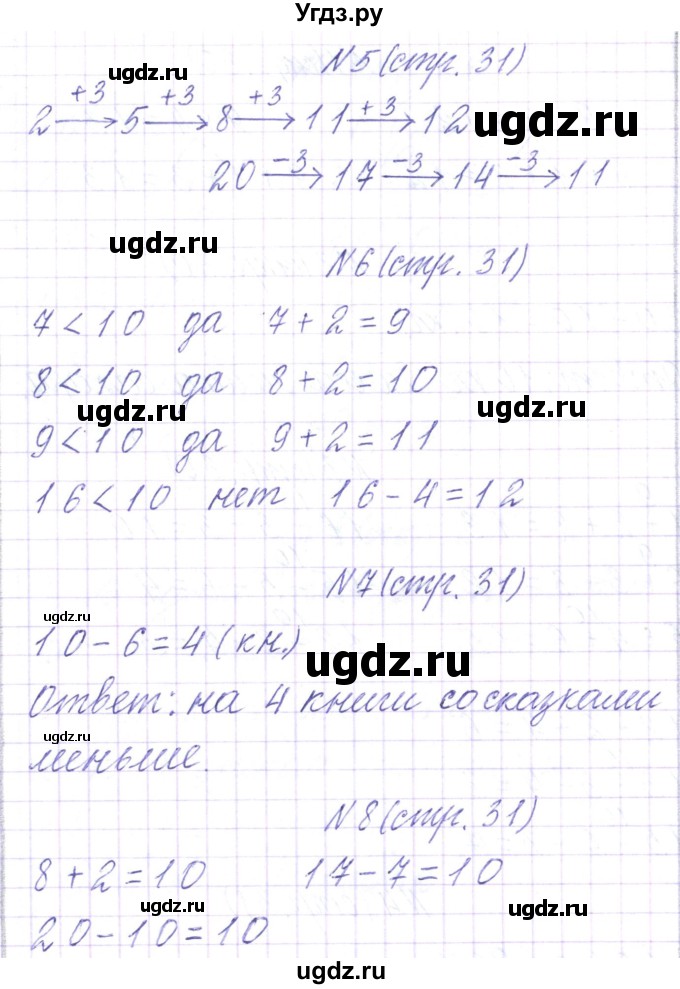 Угдз.ру
N5 (стр. 31)
ugdz.ru
2 +3→ 5 +3→ 8 +3→ 11 +3→ 12
ugdz.ru
20 -3→ 17 -3→ 14 -3→ 11
ugdz.ru
N6 (стр. 31)
7<10 да 7+2=9
8<10 да 8+2=10
ugdz.ru ugdz.ru
9<10 да 9+2=11
16<10 нет 16-4=12
N7 (стр. 31)
ugdz.ru
10-6=4 (кн.)
ugdz.ru
Ответ: на 4 книги со сказками
ugdz.ru
меньше.
N8 (стр. 31)
8+2=10 17-7=10
ugdz.ru ugdz.ru
20-10=10
ugdz.ru